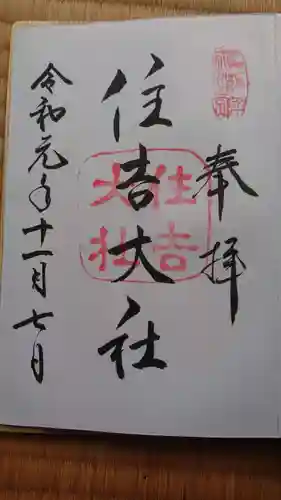 奉拝
住吉大社
住吉
大社
令和元年十一月七日